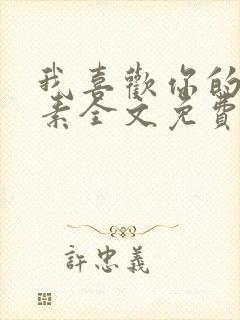 我喜歡你的
素全文免費
許忠義